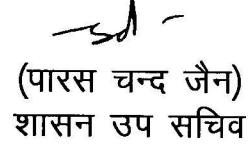 sd -
(पारस चन्द जैन)
शासन उप सचिव